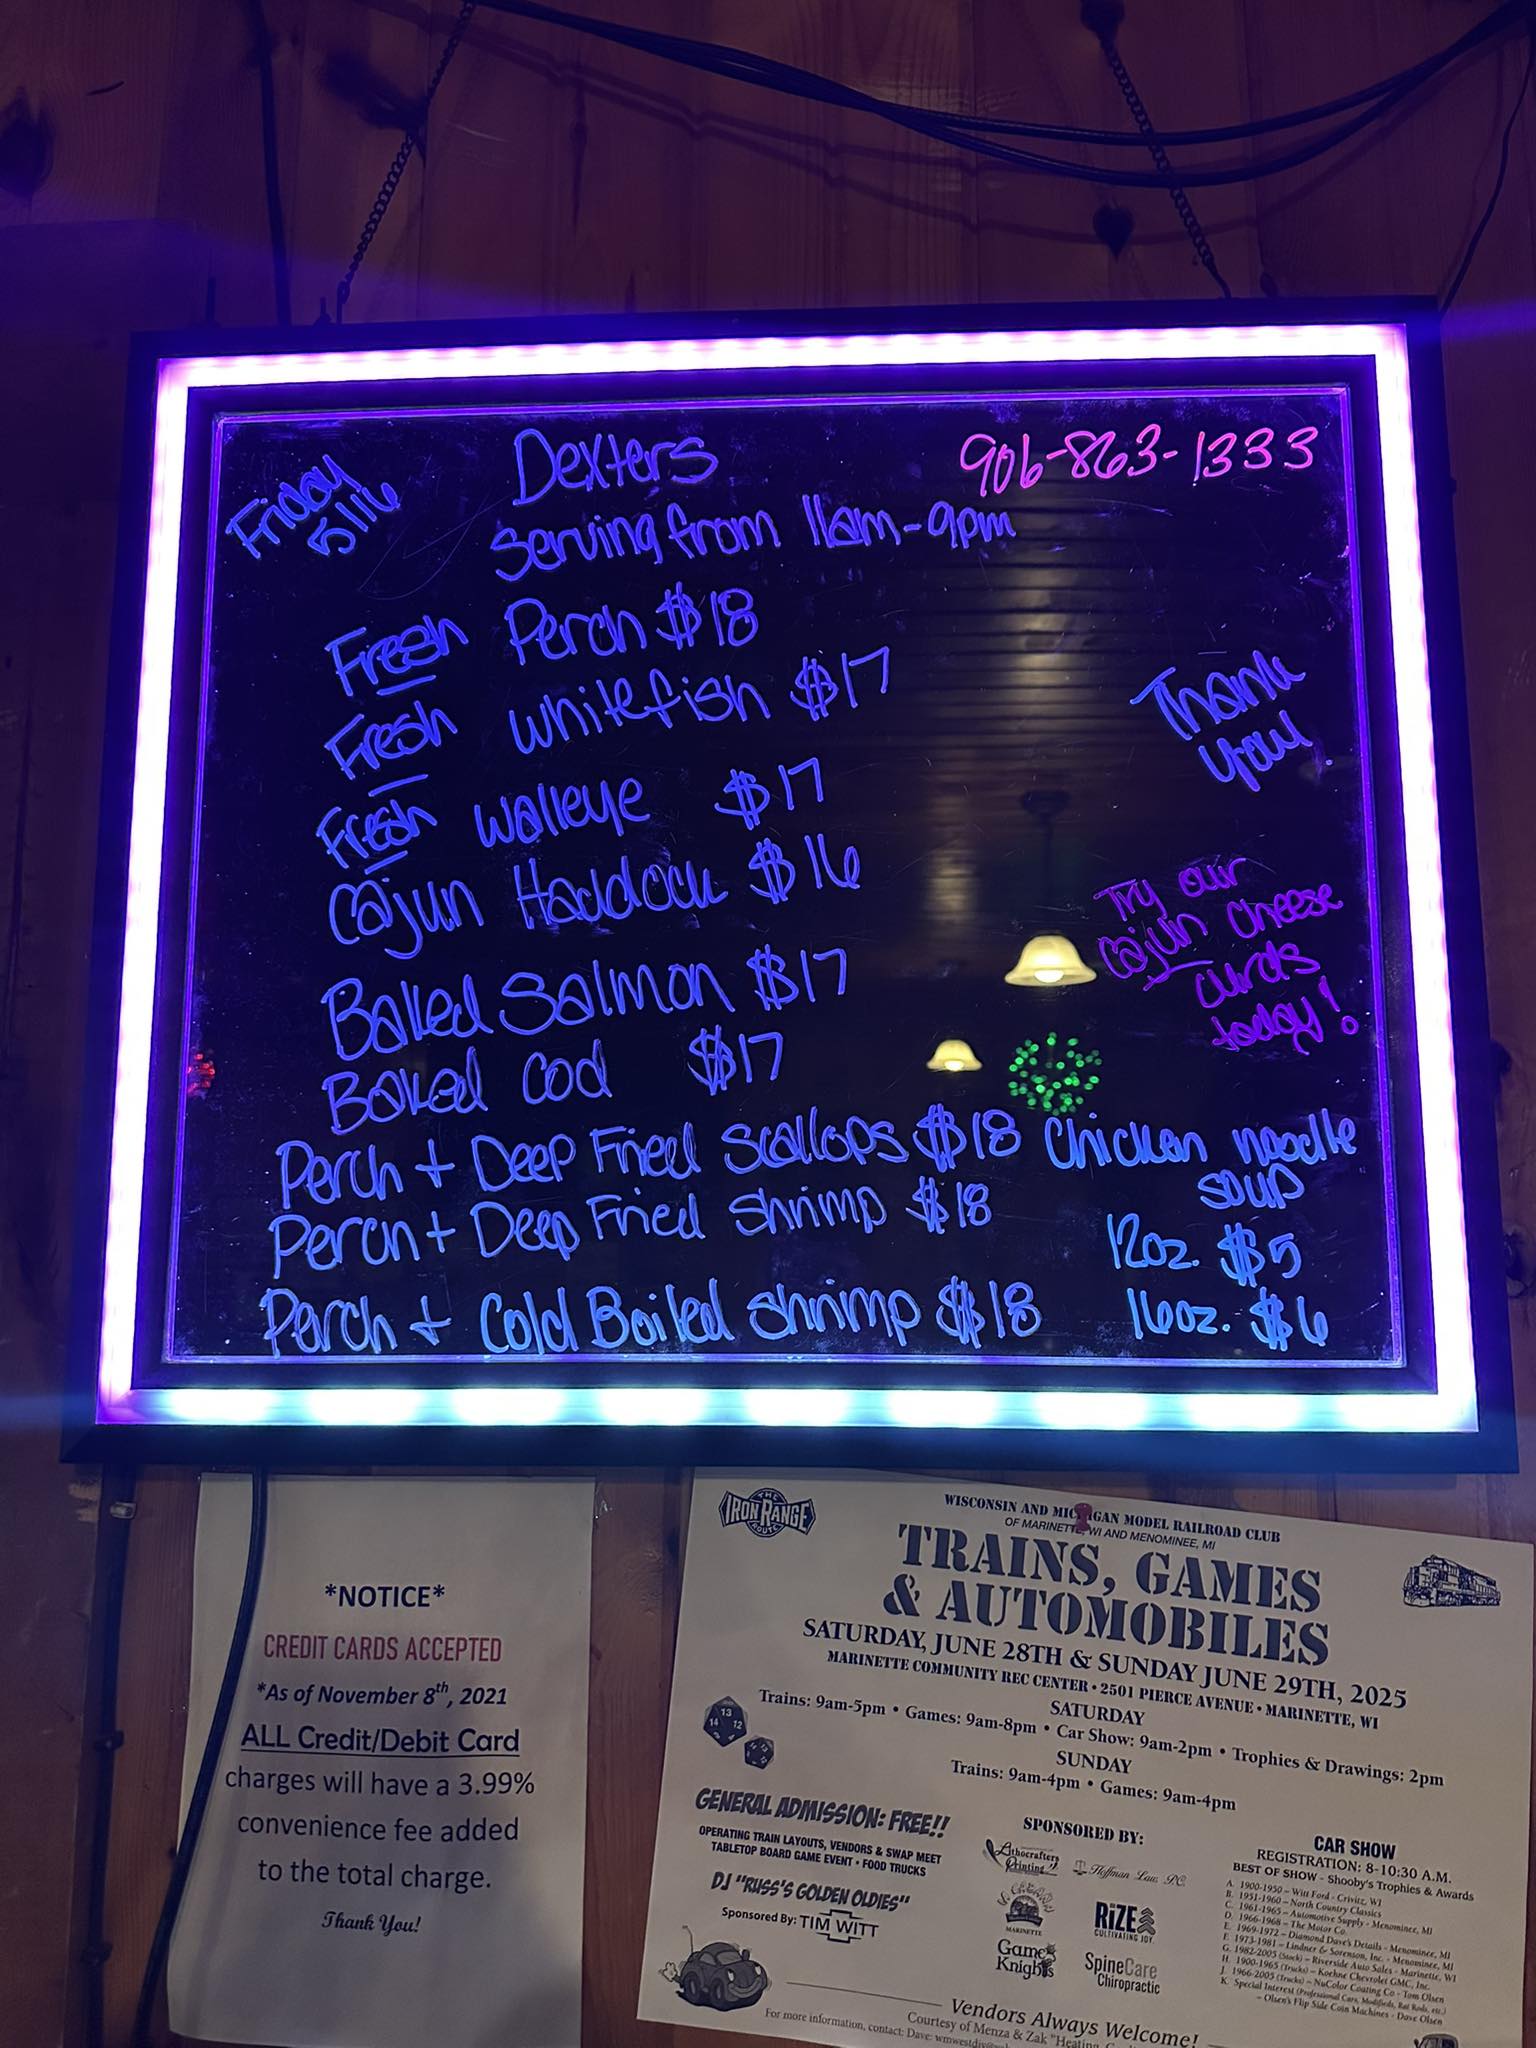 Friday
5/16
Dexters
906-863-1333
Serving from 11am-9pm
Fresh Perch $18
Fresh Whitefish $17
Fresh Walleye $17
Cajun Haddock $16
Baked Salmon $17
Baked Cod $17
Perch + Deep Fried Scallops $18
Perch + Deep Fried Shrimp $18
Perch + Cold Boiled Shrimp $18
Thank
you!
Try our
Cajun Cheese
curds
today!
Chicken noodle
soup
12oz. $5
16oz. $6
*NOTICE*
CREDIT CARDS ACCEPTED
*As of November 8th, 2021
ALL Credit/Debit Card
charges will have a 3.99%
convenience fee added
to the total charge.
Thank You!
THE
IRON RANGE
ROUTE
WISCONSIN AND MICHIGAN MODEL RAILROAD CLUB
OF MARINETTE, WI AND MENOMINEE, MI
TRAINS, GAMES
& AUTOMOBILES
SATURDAY, JUNE 28TH & SUNDAY JUNE 29TH, 2025
MARINETTE COMMUNITY REC CENTER • 2501 PIERCE AVENUE • MARINETTE, WI
SATURDAY
Trains: 9am-5pm • Games: 9am-8pm • Car Show: 9am-2pm • Trophies & Drawings: 2pm
SUNDAY
Trains: 9am-4pm • Games: 9am-4pm
13
14 12
GENERAL ADMISSION: FREE!!
OPERATING TRAIN LAYOUTS, VENDORS & SWAP MEET
TABLETOP BOARD GAME EVENT • FOOD TRUCKS
DJ "RUSS'S GOLDEN OLDIES"
Sponsored By: TIM WITT
SPONSORED BY:
Lithocrafters
Printing
Hoffman Law, P.C.
MARINETTE
RiZE
CULTIVATING JOY.
Game
Knights
SpineCare
Chiropractic
CAR SHOW
REGISTRATION: 8-10:30 A.M.
BEST OF SHOW - Shooby's Trophies & Awards
A. 1900-1950 – Witt Ford - Crivitz, WI
B. 1951-1960 – North Country Classics
C. 1961-1965 – Automotive Supply - Menominee, MI
D. 1966-1968 – The Motor Co.
E. 1969-1972 – Diamond Dave's Details - Menominee, MI
F. 1973-1981 – Lindner & Sorenson, Inc. - Menominee, MI
G. 1982-2005 (Stock) – Riverside Auto Sales - Marinette, WI
H. 1900-1965 (Trucks) – Koehne Chevrolet GMC, Inc.
J. 1966-2005 (Trucks) – NuColor Coating Co - Tom Olsen
K. Special Interest (Professional Cars, Modifieds, Rat Rods, etc.)
– Olsen's Flip Side Coin Machines - Dave Olsen
Vendors Always Welcome!
Courtesy of Menza & Zak "Heating,
For more information, contact: Dave: